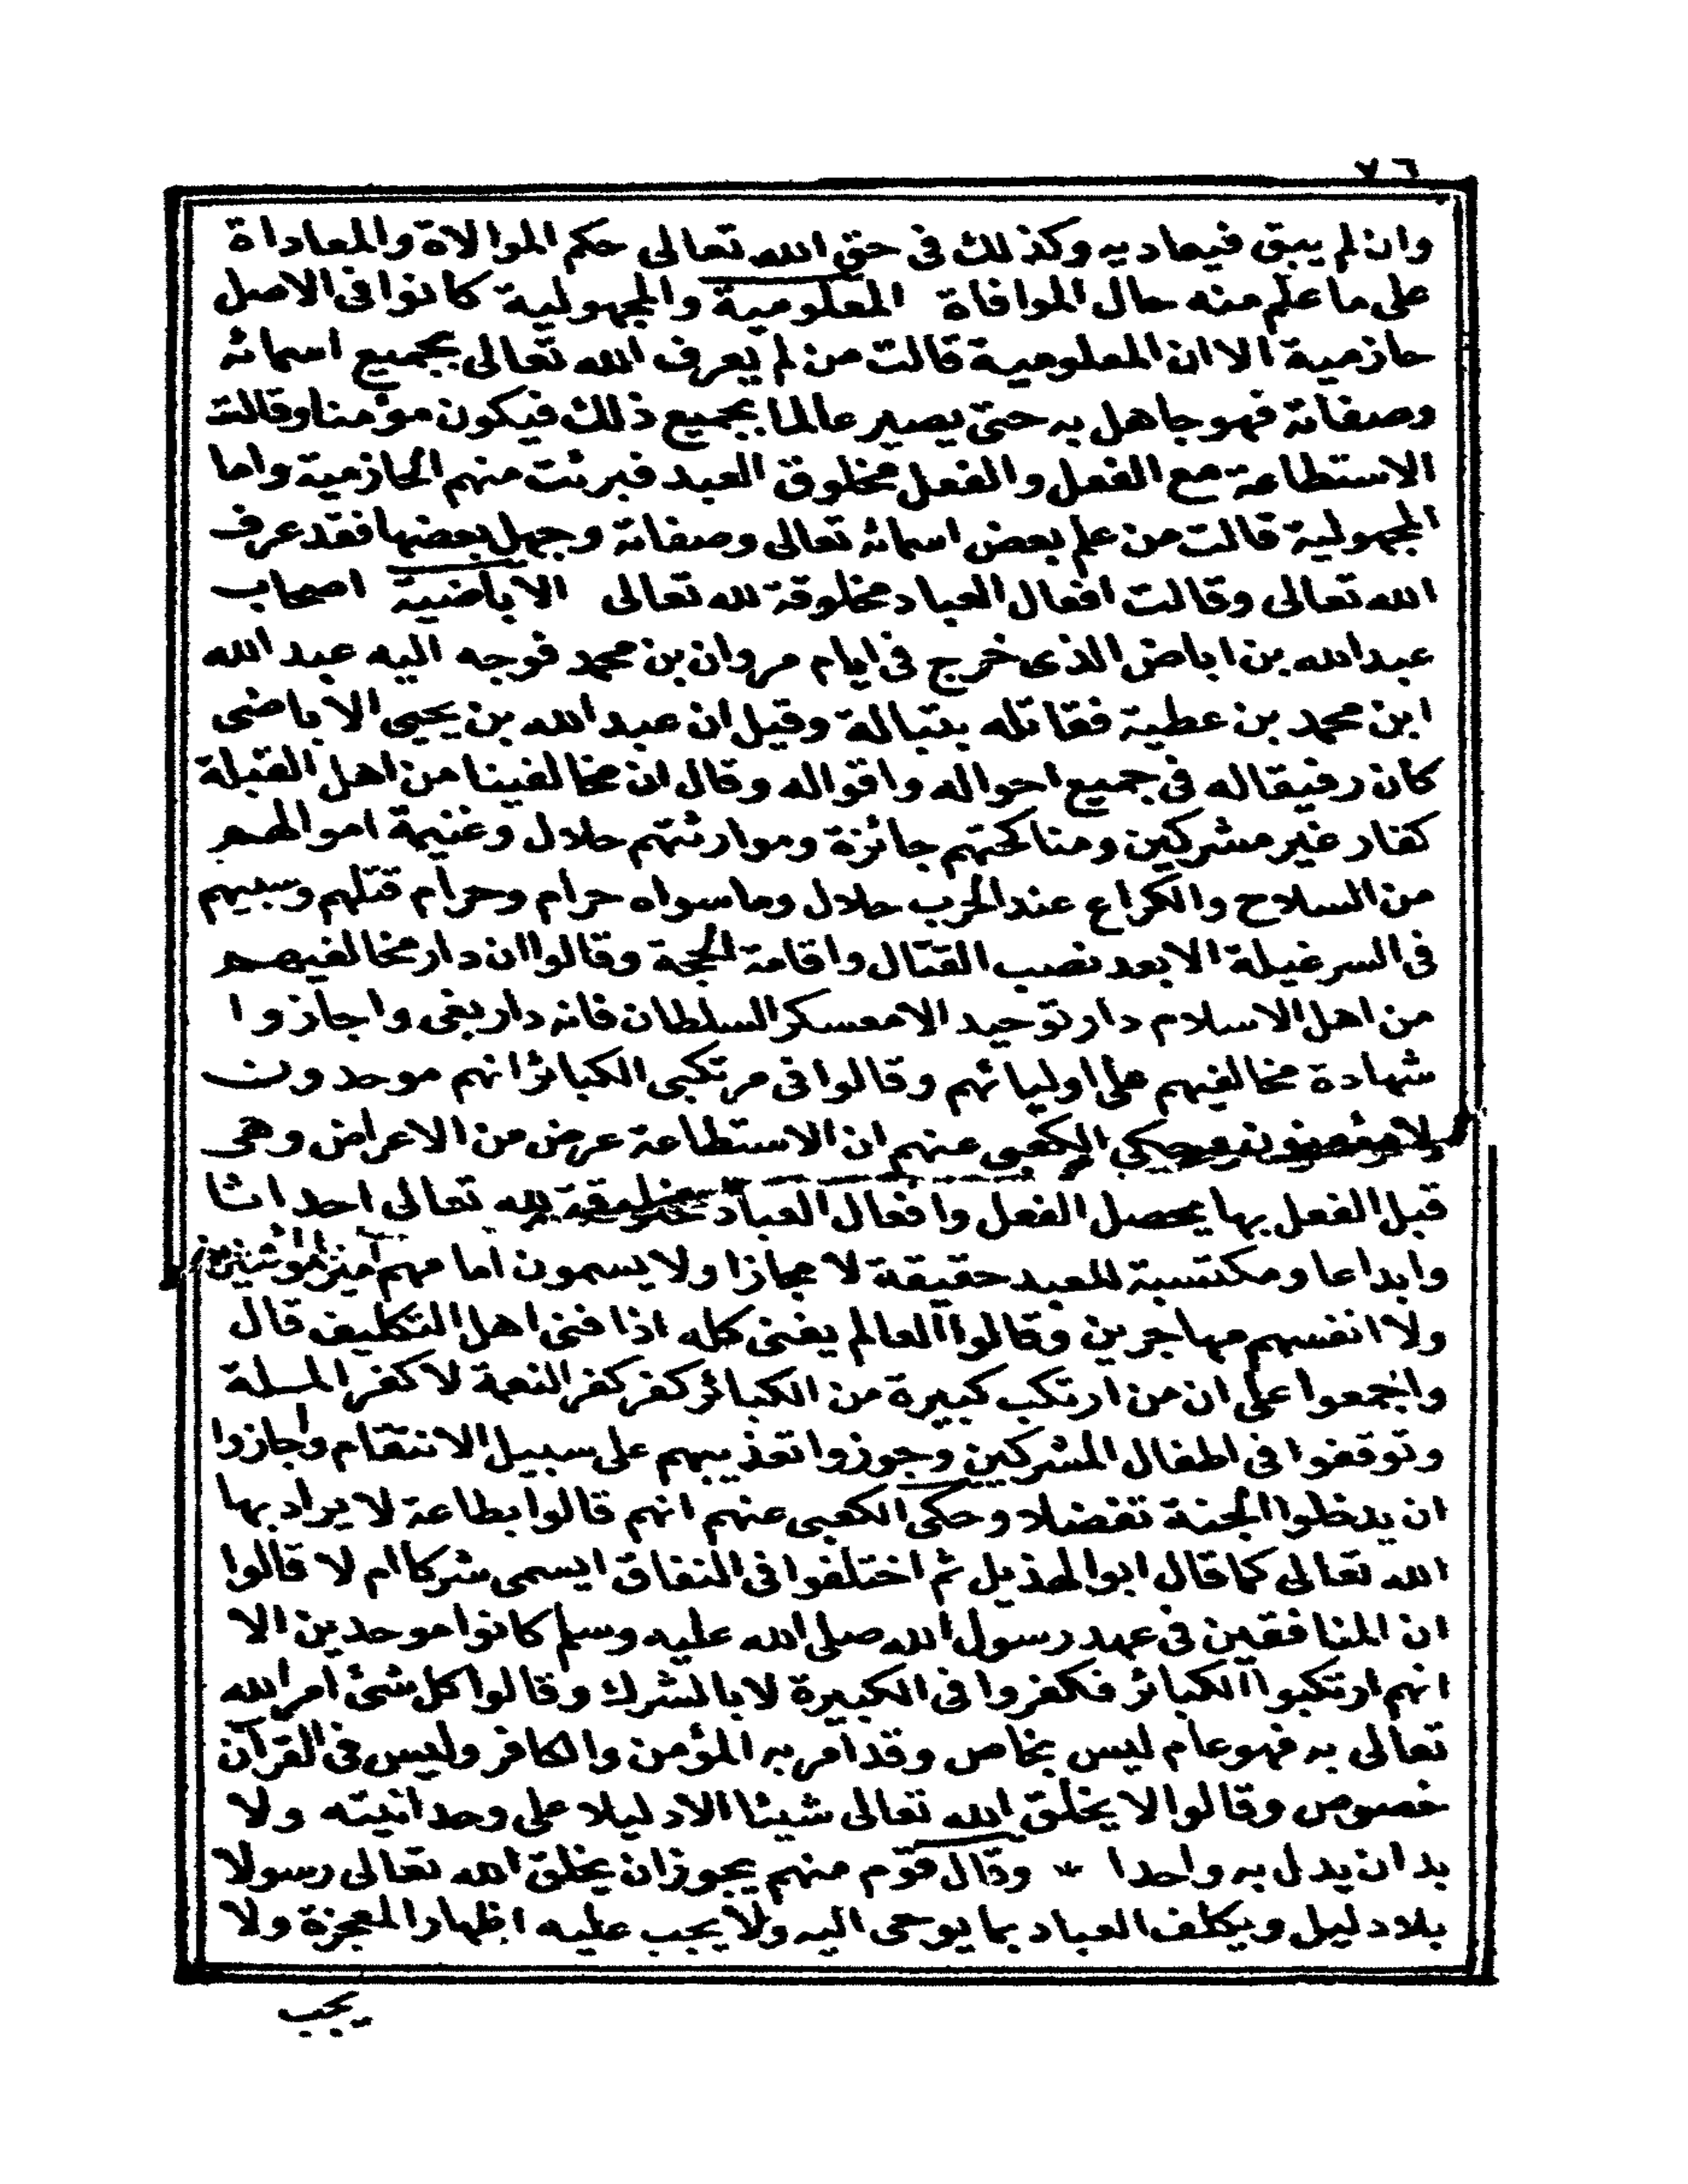 ٧٦
وان لم يبق فيعاديه وكذلك فى حق الله تعالى حكم الموالاة والمعاداة
على ما علم منه حال الموافاة المعلومية والمجهولية كانوا فى الاصل
حازمية الا ان المعلومية قالت من لم يعرف الله تعالى بجميع اسمائه
وصفاته فهو جاهل به حتى يصير عالما بجميع ذلك فيكون مؤمنا وقالت
الاستطاعة مع الفعل والفعل مخلوق العبد فبرئت منهم الحازمية واما
المجهولية قالت من علم بعض اسمائه تعالى وصفاته وجهل بعضها فقد عرف
الله تعالى وقالت افعال العباد مخلوقة لله تعالى الاباضية اصحاب
عبد الله بن اباض الذى خرج فى ايام مروان بن محمد فوجه اليه عبد الله
ابن محمد بن عطية فقاتله بتبالة وقيل ان عبد الله بن يحيى الاباضى
كان رفيقاله فى جميع احواله واقواله وقال ان مخالفينا من اهل القبلة
كفار غير مشركين ومناكحتهم جائزة وموارثتهم حلال وغنيمة اموالهم
من السلاح والكراع عند الحرب حلال وما سواه حرام وحرام قتلهم وسبيهم
فى السر غيلة الا بعد نصب القتال واقامة الحجة وقالوا ان دار مخالفيهم
من اهل الاسلام دار توحيد الا معسكر السلطان فانه دار بغى واجازوا
شهادة مخالفيهم على اوليائهم وقالوا فى مرتكبى الكبائر انهم موحدون
لا مؤمنون وحكى الكعبى عنهم ان الاستطاعة عرض من الاعراض وهى
قبل الفعل بها يحصل الفعل وافعال العباد مخلوقة لله تعالى احداثا
وابداعا ومكتسبة للعبد حقيقة لا مجازا ولا يسمون امامهم امير المؤمنين
ولا انفسهم مهاجرين وقالوا العالم يفنى كله اذا فنى اهل التكليف قال
واجمعوا على ان من ارتكب كبيرة من الكبائر كفر كفر النعمة لا كفر الملة
وتوقفوا فى اطفال المشركين وجوزوا تعذيبهم على سبيل الانتقام واجازوا
ان يدخلوا الجنة تفضلا وحكى الكعبى عنهم انهم قالوا بطاعة لا يراد بها
الله تعالى كما قال ابو الهذيل ثم اختلفوا فى النفاق ايسمى شركا ام لا قالوا
ان المنافقين فى عهد رسول الله صلى الله عليه وسلم كانوا موحدين الا
انهم ارتكبوا الكبائر فكفروا فى الكبيرة لا بالشرك وقالوا كل شئ امر الله
تعالى به فهو عام ليس بخاص وقد امر به المؤمن والكافر وليس فى القرآن
خصوص وقالوا لا يخلق الله تعالى شيئا الا دليلا على وحدانيته ولا
بد ان يدل به واحدا * وقال قوم منهم يجوز ان يخلق الله تعالى رسولا
بلا دليل ويكلف العباد بما يوحى اليه ولا يجب عليه اظهار المعجزة ولا
يجب